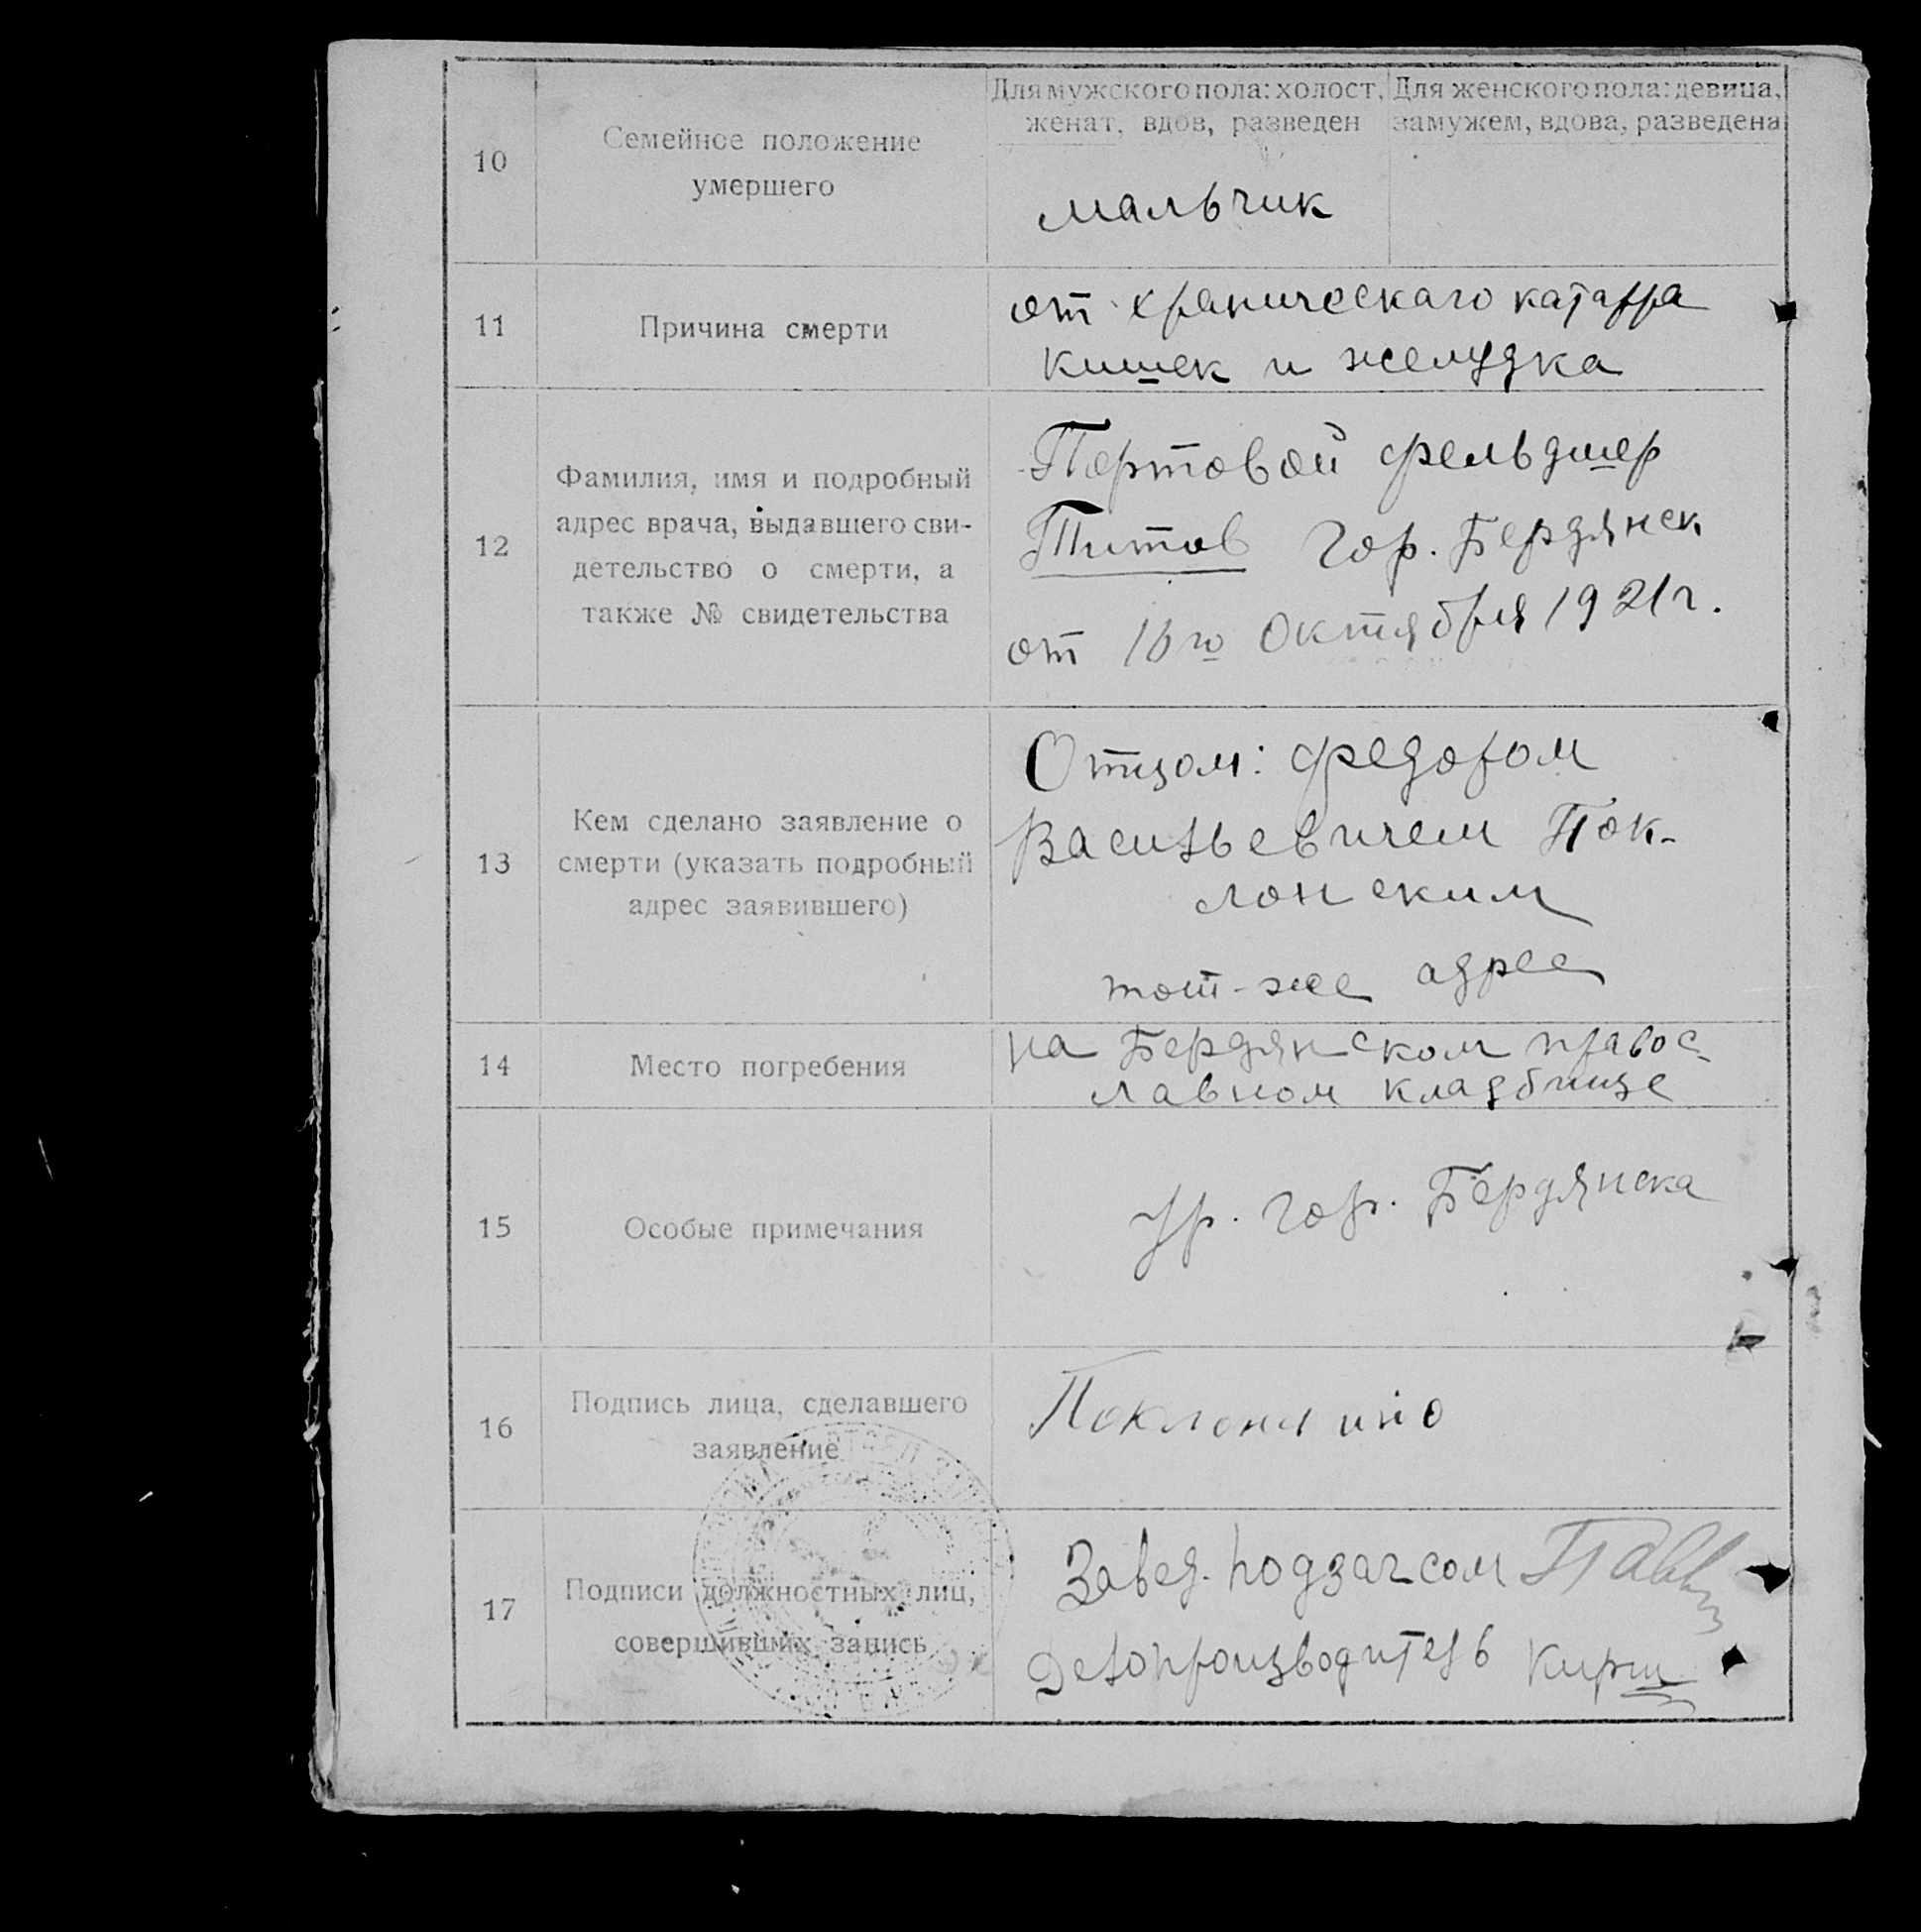 10
Семейное положение
умершего
Для мужского пола: холост,
женат, вдов, разведен
Для женского пола: девица,
замужем, вдова, разведена
мальчик
11
Причина смерти
от хранического катарра
кишек и желудка
12
Фамилия, имя и подробный
адрес врача, выдавшего сви-
детельство о смерти, а
также № свидетельства
Портовой фельдшер
Титов Гор. Бердянск
от 16го Октября 1921 г.
13
Кем сделано заявление о
смерти (указать подробный
адрес заявившего)
Отцом: Федором
Васильевичем Пок-
лонским
тот-же адрес
14
Место погребения
на Бердянском правос-
лавном кладбище
15
Особые примечания
Ур. гор. Бердянска
16
Подпись лица, сделавшего
заявление
17
Подписи должностных лиц,
совершивших запись
Завед. подзагсом
Делопроизводитель Кирш